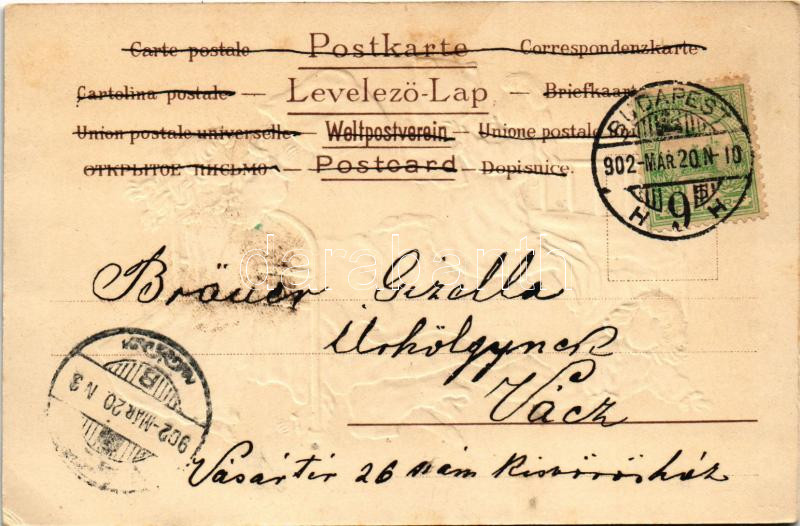 Carte postale — Postkarte — Correspondenzkarte
Cartolina postale — Levelező-Lap — Briefkaart
Union postale universelle — Weltpostverein — Unione postale
ОТКРЫТОЕ ПИСЬМО — Postcard — Dopisnice.
BUDAPEST
902-MÁR.20.N-10
H 9 H
darabanth
Bräuer Gizella
Úrhölgynek
Vácz
902-MÁR.20 N 3
B
Vásártér 26 szám kisvörösház